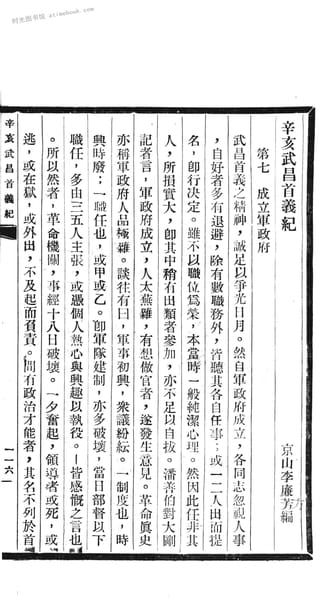 时光图书馆 atimebook.com
辛亥武昌首義紀
京山李廉芳編
第七　成立軍政府
武昌首義之精神，誠足以爭光日月。然自軍政府成立，各同志忽視人事
，自好者多有退避，除有數職務外，皆聽其各自任事；或一二人出而提
名，卽行決定。雖不以職位爲榮，本當時一般純潔心理。然因此任非其
人，所損實大，卽其中稍有出類者參加，亦不足以自拔。潘善伯對大剛
記者言，軍政府成立，人太蕪雜，有想做官者，遂發生意見。革命眞史
亦稱軍政府人品極雜。談往有曰，軍事初興，衆議紛紜。一制度也，時
興時廢；一職任也，或甲或乙。卽軍隊建制，亦多破壞，當日部督以下
職任，多由三五人主張，或憑個人熱心與興趣以執役。ー皆感慨之言也
。所以然者，革命機關，事經十八日破壞。一夕奮起，領導者或死，或
逃，或在獄，或外出，不及起而負責。間有政治才能者，其名不列於首
辛亥武昌首義紀
一一六